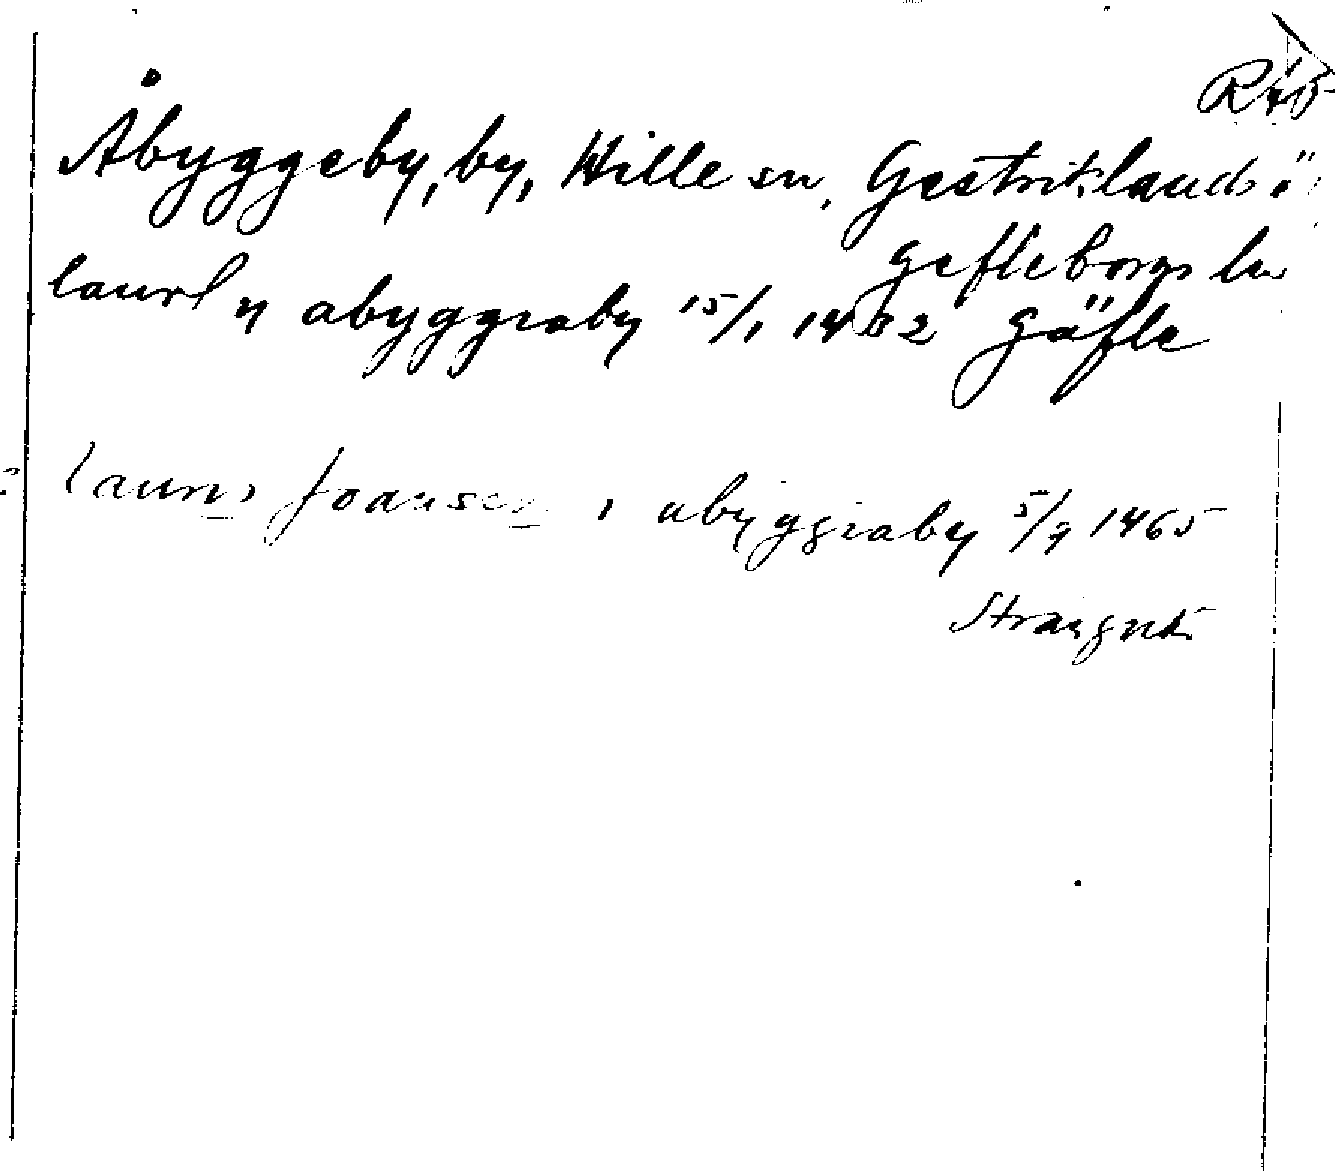 RAP
Åbyggeby, by, Hille sn, Gestriklands ö
Gefleborgs län
laurß y abyggiaby 15/1 1402 Gäfle
laurns joansen i abyggiaby 5/7 1465
Strängnäs